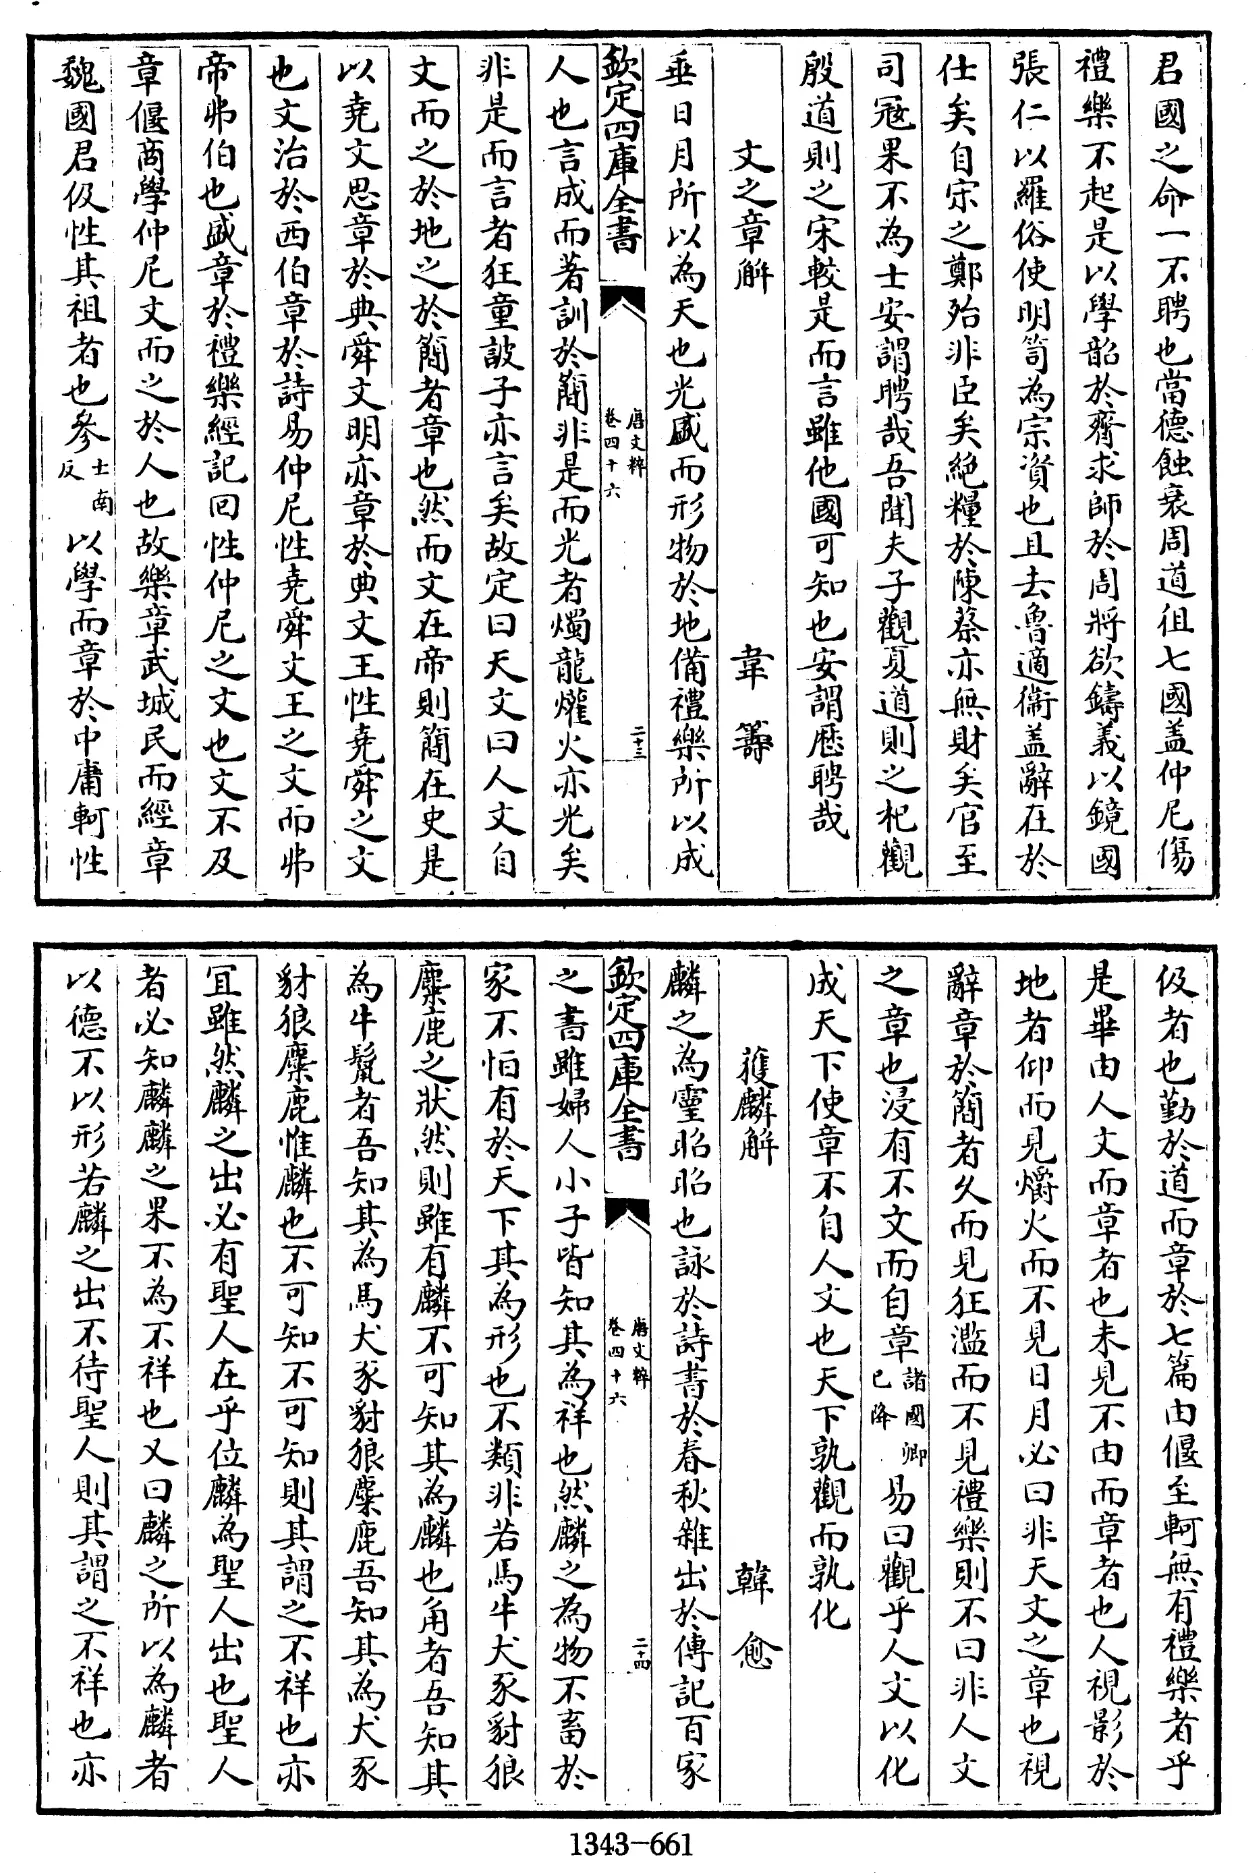 君國之命一不聘也當德蝕衰周道徂七國盖仲尼傷
禮樂不起是以學韶於齊求師於周將欲鑄義以鏡國
張仁以羅俗使明笥為宗資也且去魯適衞盖辭在於
仕矣自宋之鄭殆非臣矣絶糧於陳蔡亦無財矣官至
司冦果不為士安謂聘哉吾聞夫子觀夏道則之杞觀
殷道則之宋較是而言雖他國可知也安謂歴聘哉
文之章解 韋籌
垂日月所以為天也光盛而形物於地備禮樂所以成
欽定四庫全書 唐文粹 卷四十六 二十三
人也言成而著訓於簡非是而光者燭龍爟火亦光矣
非是而言者狂童詖子亦言矣故定曰天文曰人文自
文而之於地之於簡者章也然而文在帝則簡在史是
以堯文思章於典舜文明亦章於典文王性堯舜之文
也文治於西伯章於詩易仲尼性堯舜文王之文而弗
帝弗伯也盛章於禮樂經記回性仲尼之文也文不及
章偃商學仲尼文而之於人也故樂章武城民而經章
魏國君伋性其祖者也參士南反以學而章於中庸軻性
伋者也勤於道而章於七篇由偃至軻無有禮樂者乎
是畢由人文而章者也未見不由而章者也人視影於
地者仰而見爝火而不見日月必曰非天文之章也視
辭章於簡者久而見狂濫而不見禮樂則不曰非人文
之章也浸有不文而自章諸國卿已降易曰觀乎人文以化
成天下使章不自人文也天下孰觀而孰化
獲麟解 韓愈
麟之為靈昭昭也詠於詩書於春秋雜出於傳記百家
欽定四庫全書 唐文粹 卷四十六 二十四
之書雖婦人小子皆知其為祥也然麟之為物不畜於
家不怕有於天下其為形也不類非若馬牛犬豕豺狼
麋鹿之狀然則雖有麟不可知其為麟也角者吾知其
為牛鬛者吾知其為馬犬豕豺狼麋鹿吾知其為犬豕
豺狼麋鹿惟麟也不可知不可知則其謂之不祥也亦
宜雖然麟之出必有聖人在乎位麟為聖人出也聖人
者必知麟麟之果不為不祥也又曰麟之所以為麟者
以德不以形若麟之出不待聖人則其謂之不祥也亦
1343-661